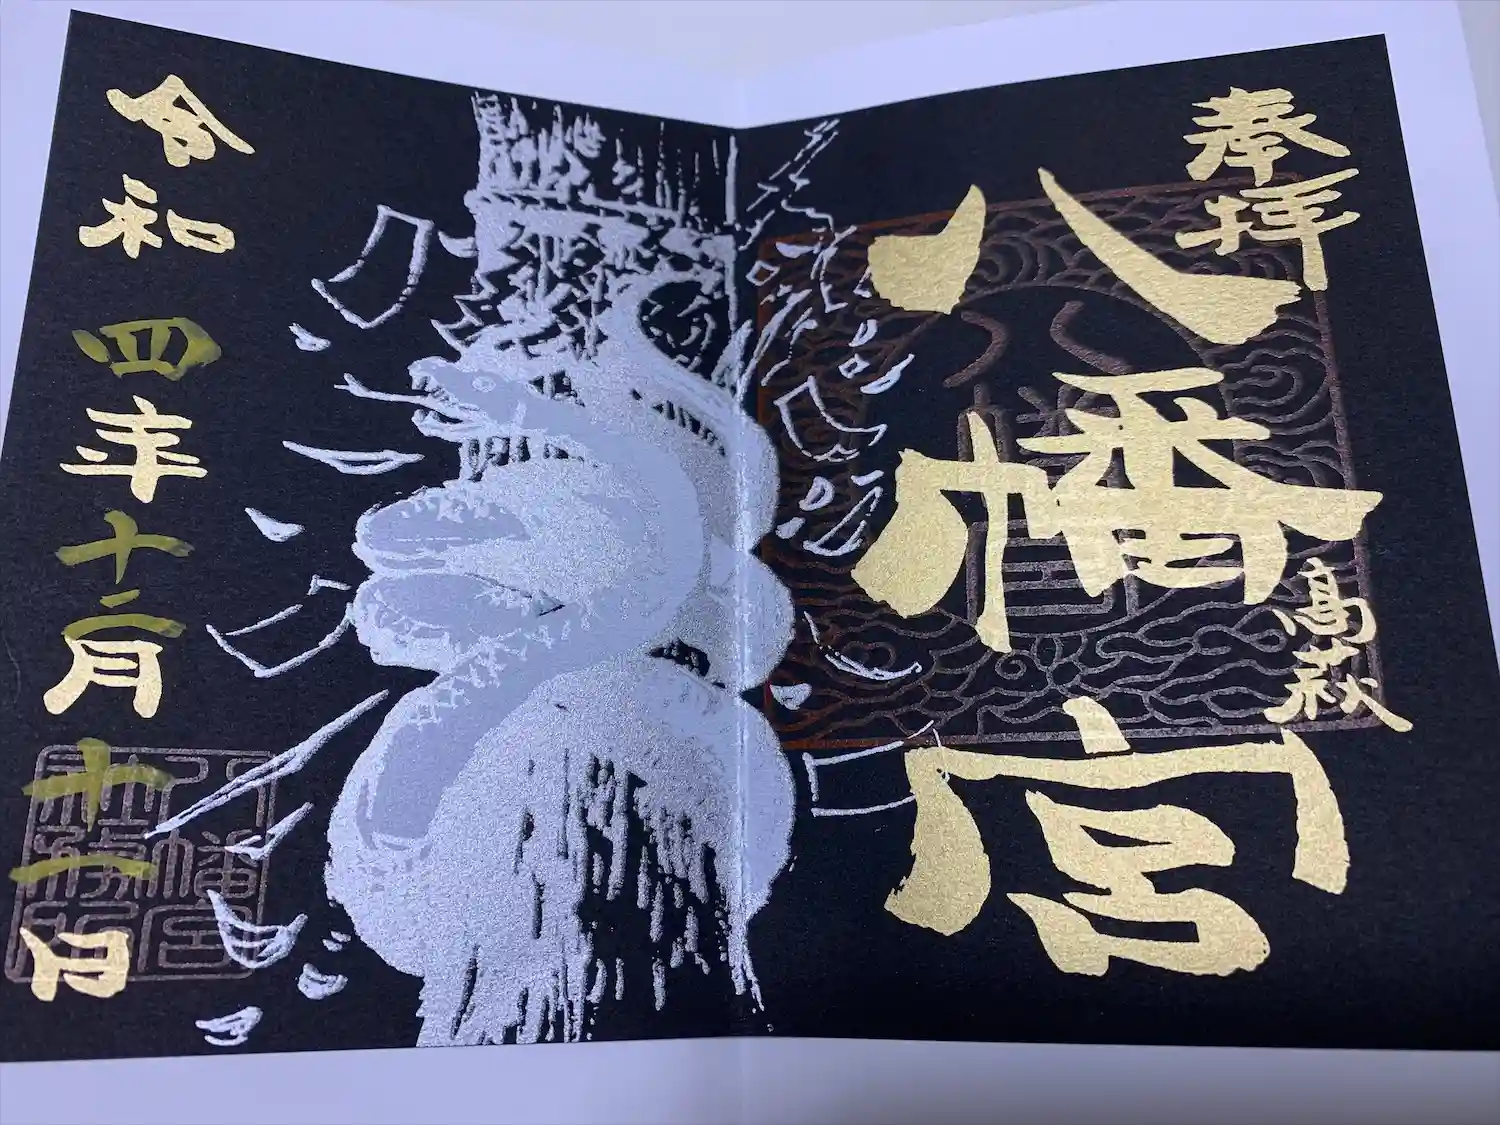 奉拝
八幡宮
高萩
令和四年十二月十一日
八幡宮